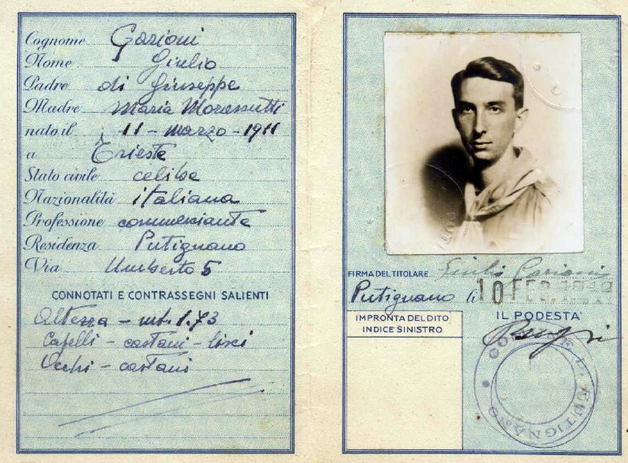 Cognome Garioni
Nome Giulio
Padre di Giuseppe
Madre Maria Morassutti
nato il 11 - marzo - 1911
a Trieste
Stato civile celibe
Nazionalità italiana
Professione commerciante
Residenza Putignano
Via Umberto 5
CONNOTATI E CONTRASSEGNI SALIENTI
Altezza - mt. 1.73
Capelli - castani - lisci
Occhi - castani
FIRMA DEL TITOLARE Giulio Garioni
Putignano li 10 FEB.
IMPRONTA DEL DITO
INDICE SINISTRO
IL PODESTÀ
PUTIGNANO